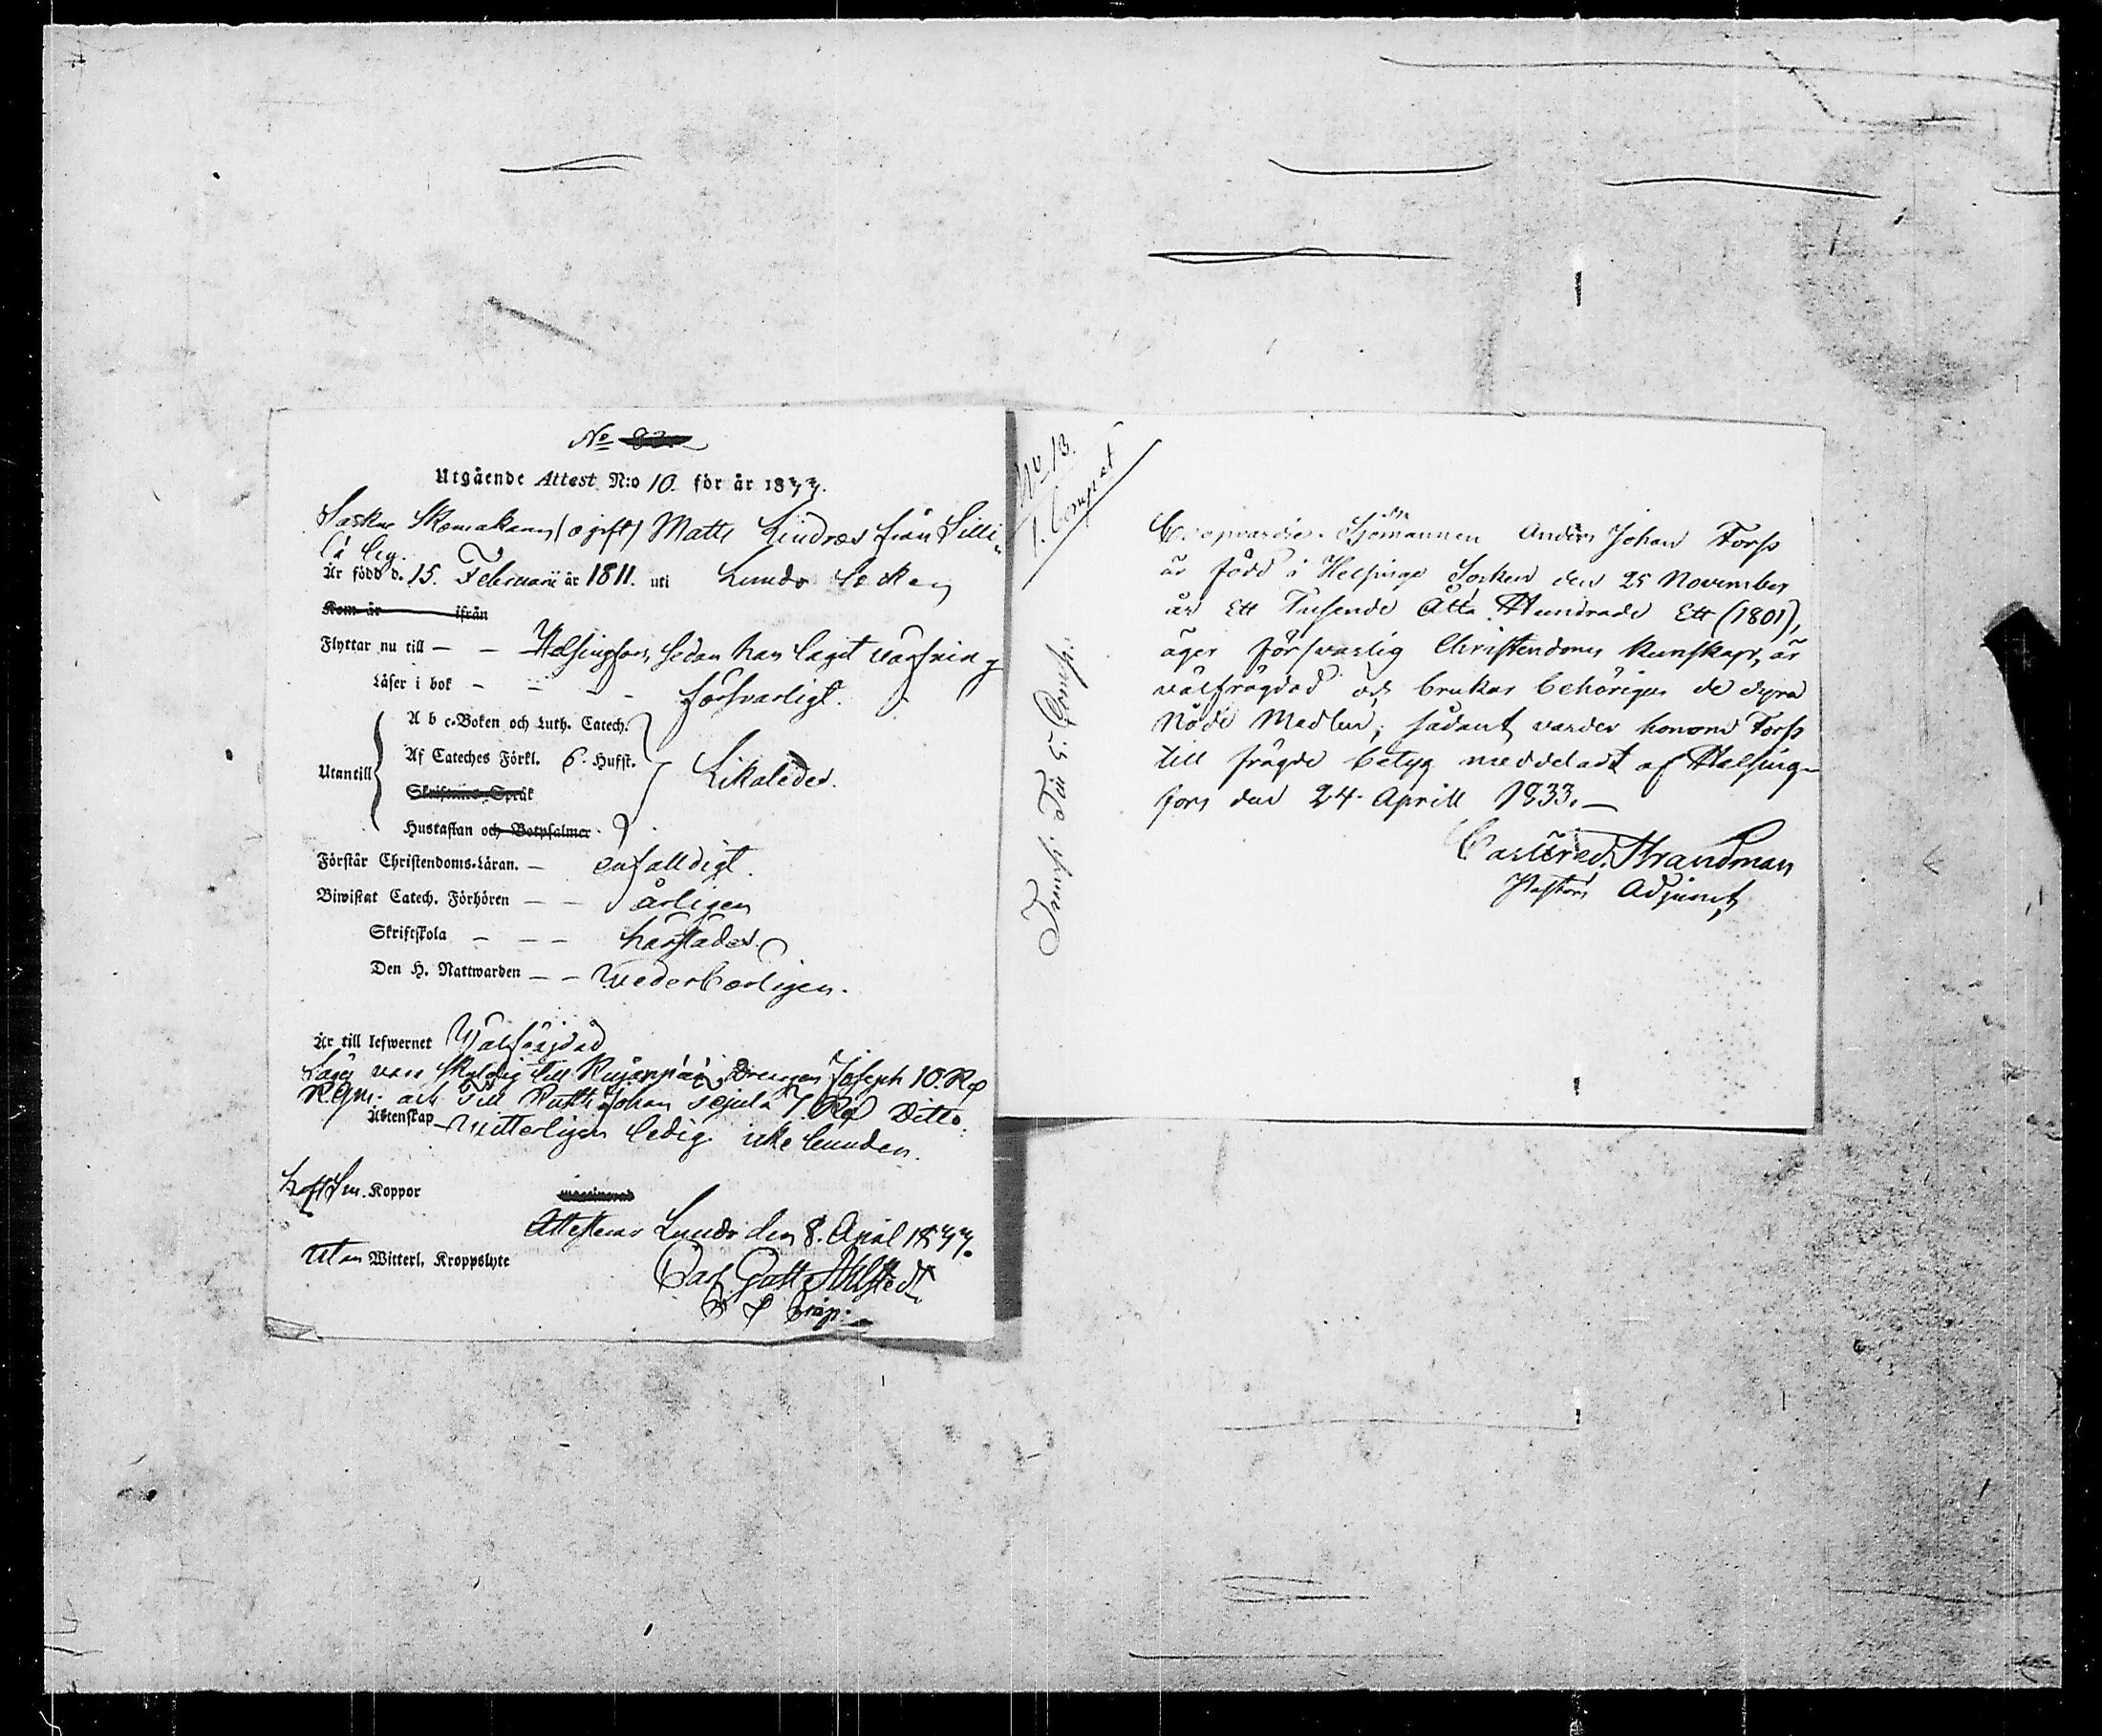 No
Utgående Attest N:o 10. för år 1833.
Sockne Skomakaren (ogift) Matts Lindros från Silli-
Är född d. 15. Februarii år 1811. uti Lundo Socken
Kom år ifrån
Flyttar nu till — — Helsingfors, sedan han laget
Läser i bok - - - - försvarligt.
A b c-Boken och Luth. Catech.
Af Cateches Förkl. 6. Hufst.
Utantill Likaledes.
Skriftenes Språk
Hustaflan och Botpsalmer
Förstår Christendoms-Läran. — enfalldigt.
Biwistat Catech. Förhören — — årligen
Skriftskola — — —
Den H. Nattwarden — — wederbörligen.
Är till lefwernet Wälfrägdad
Säges vara skyldig till Drengen Joseph 10. R
och Till Johan 7. R Ditto.
Äktenskap witterligen ledig icke bunden.
haft sm. Koppor vaccinerad
Attesteras Lundo den 8. April 1833.
utan Witterl. Kroppslyte
Carl Gust. Ahlstedt.
No 13.
1. Comp
Sjömannen Anders Johan Forss
är född i Helsinge Socken den 25 November
år Ett Tusende Åtta Hundrade Ett (1801),
äger försvarlig Christendoms kunskap, är
välfrägdad och brukar behörigen de dyra
Nåde Medlen; sådant varder honom Forss
till frägde betyg meddeladt af Helsing-
fors den 24. Aprill 1833. —
Carl Fred. Strandman
Pastors Adjunct